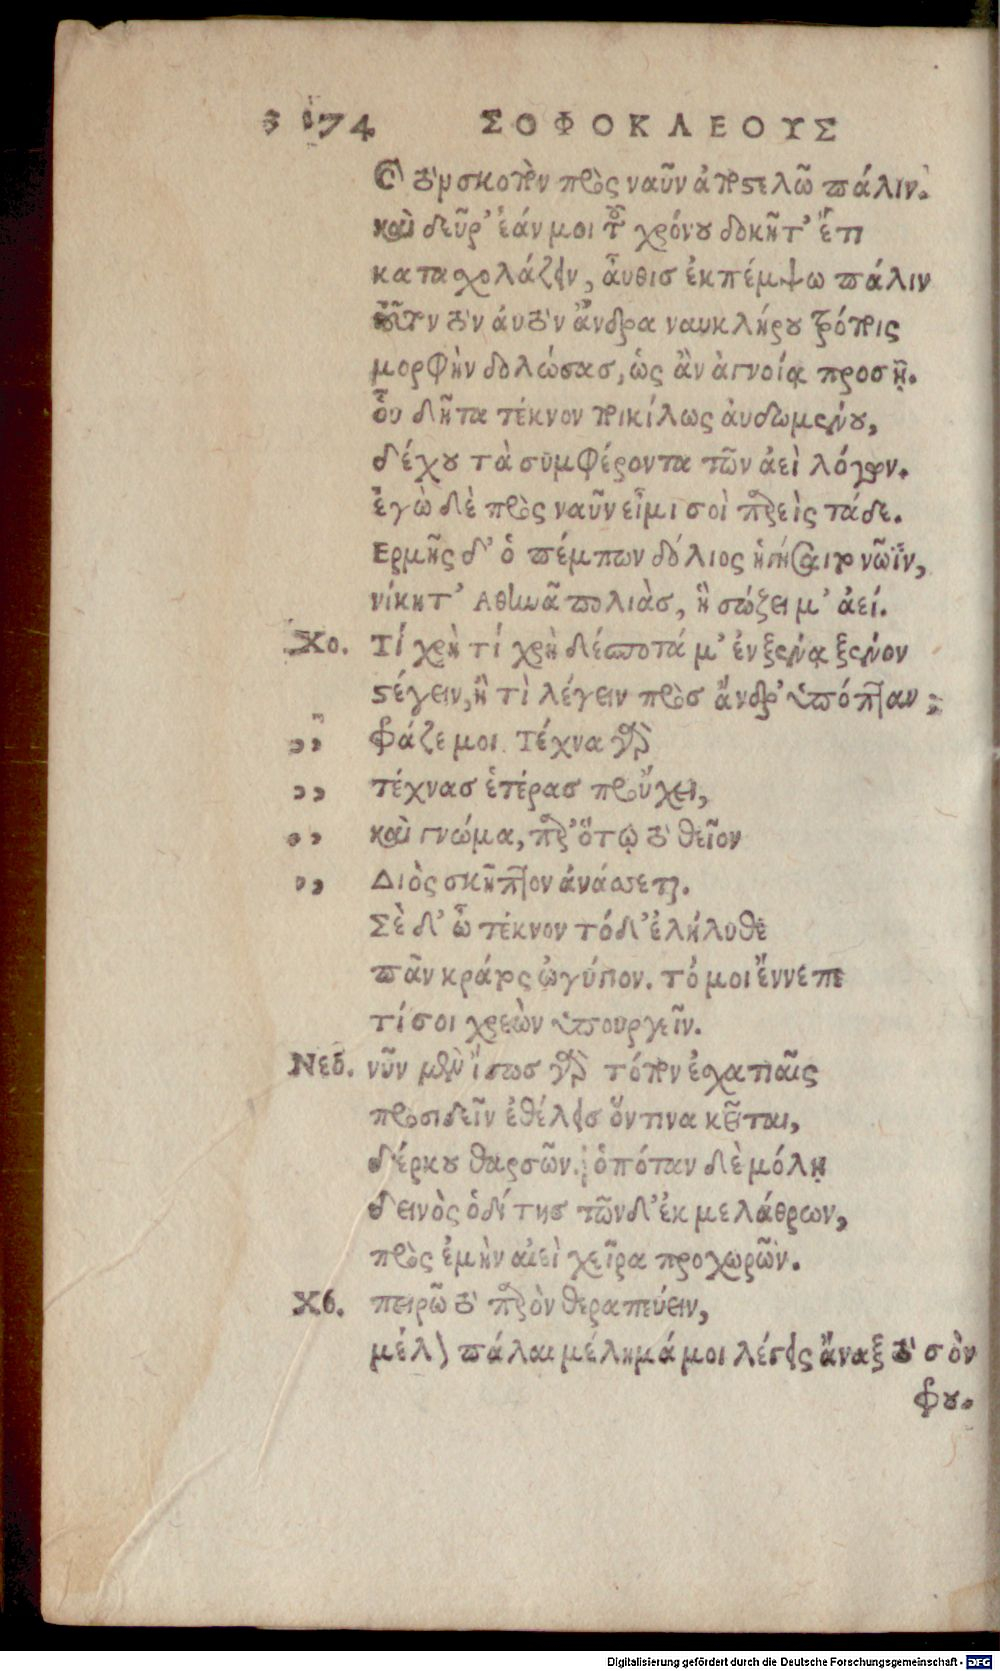 374 ΣΟΦΟΚΛΕΟΥΣ
σὺ τόν σκοπὸν πρὸς ναῦν ἀποστελῶ πάλιν.
καὶ δεῦρ' ἐάν μοι τοῦ χρόνου δοκῆτ' ἔτι
κατασχολάζειν, αὖθισ ἐκπέμψω πάλιν
τοῦτον τὸν ἀυτὸν ἄνδρα ναυκλήρου τρόποις
μορφὴν δολώσασ, ὡς ἂν ἀγνοία προσῇ.
οὗ δῆτα τέκνον ποικίλως ἀυδωμένου,
δέχου τὰ συμφέροντα τῶν ἀεὶ λόγων.
ἐγὼ δὲ πρὸς ναῦν εἶμι σοὶ παρεὶς τάδε.
Ερμῆς δ' ὁ πέμπων δόλιος ἡγήσαιτο νῶϊν,
νίκητ' Αθωᾶ πολιὰσ, ἣ σώζει μ' ἀεί.
Χο. Τί χρὴ τί χρὴ δέσποτά μ' ἐν ξένᾳ ξένον
στέγειν, ἢ τὶ λέγειν πρὸσ ἄνδρ' ὑπόπταν;
,, φράζε μοι. Τέχνα γὰρ
,, τέχνασ ἑτέρασ προὔχει,
,, καὶ γνώμα, παρ' ὅτῳ τὸ θεῖον
,, Διὸς σκῆπτρον ἀνάσσεται.
Σὲ δ' ὦ τέκνον τόδ' ἐλήλυθε
πᾶν κράτος ὠγύγιον. τό μοι ἔννεπε
τί σοι χρεὼν ὑπουργεῖν.
Νεό. νῦν μὲν ἴσωσ γὰρ τόπον ἐσχατιαῖς
προσιδεῖν ἐθέλεισ ὅντινα κεῖται,
δέρκου θαρσῶν. ὁπόταν δὲ μόλῃ
δεινὸς ὁδίτησ τῶνδ' ἐκ μελάθρων,
πρὸς ἐμὴν αἰεὶ χεῖρα προχωρῶν.
Χό. πειρῶ τὸ παρὸν θεραπεύειν,
μέλον πάλαι μέλημά μοι λέγεις ἄναξ τὸ σὸν
φρου.
Digitalisierung gefördert durch die Deutsche Forschungsgemeinschaft - DFG